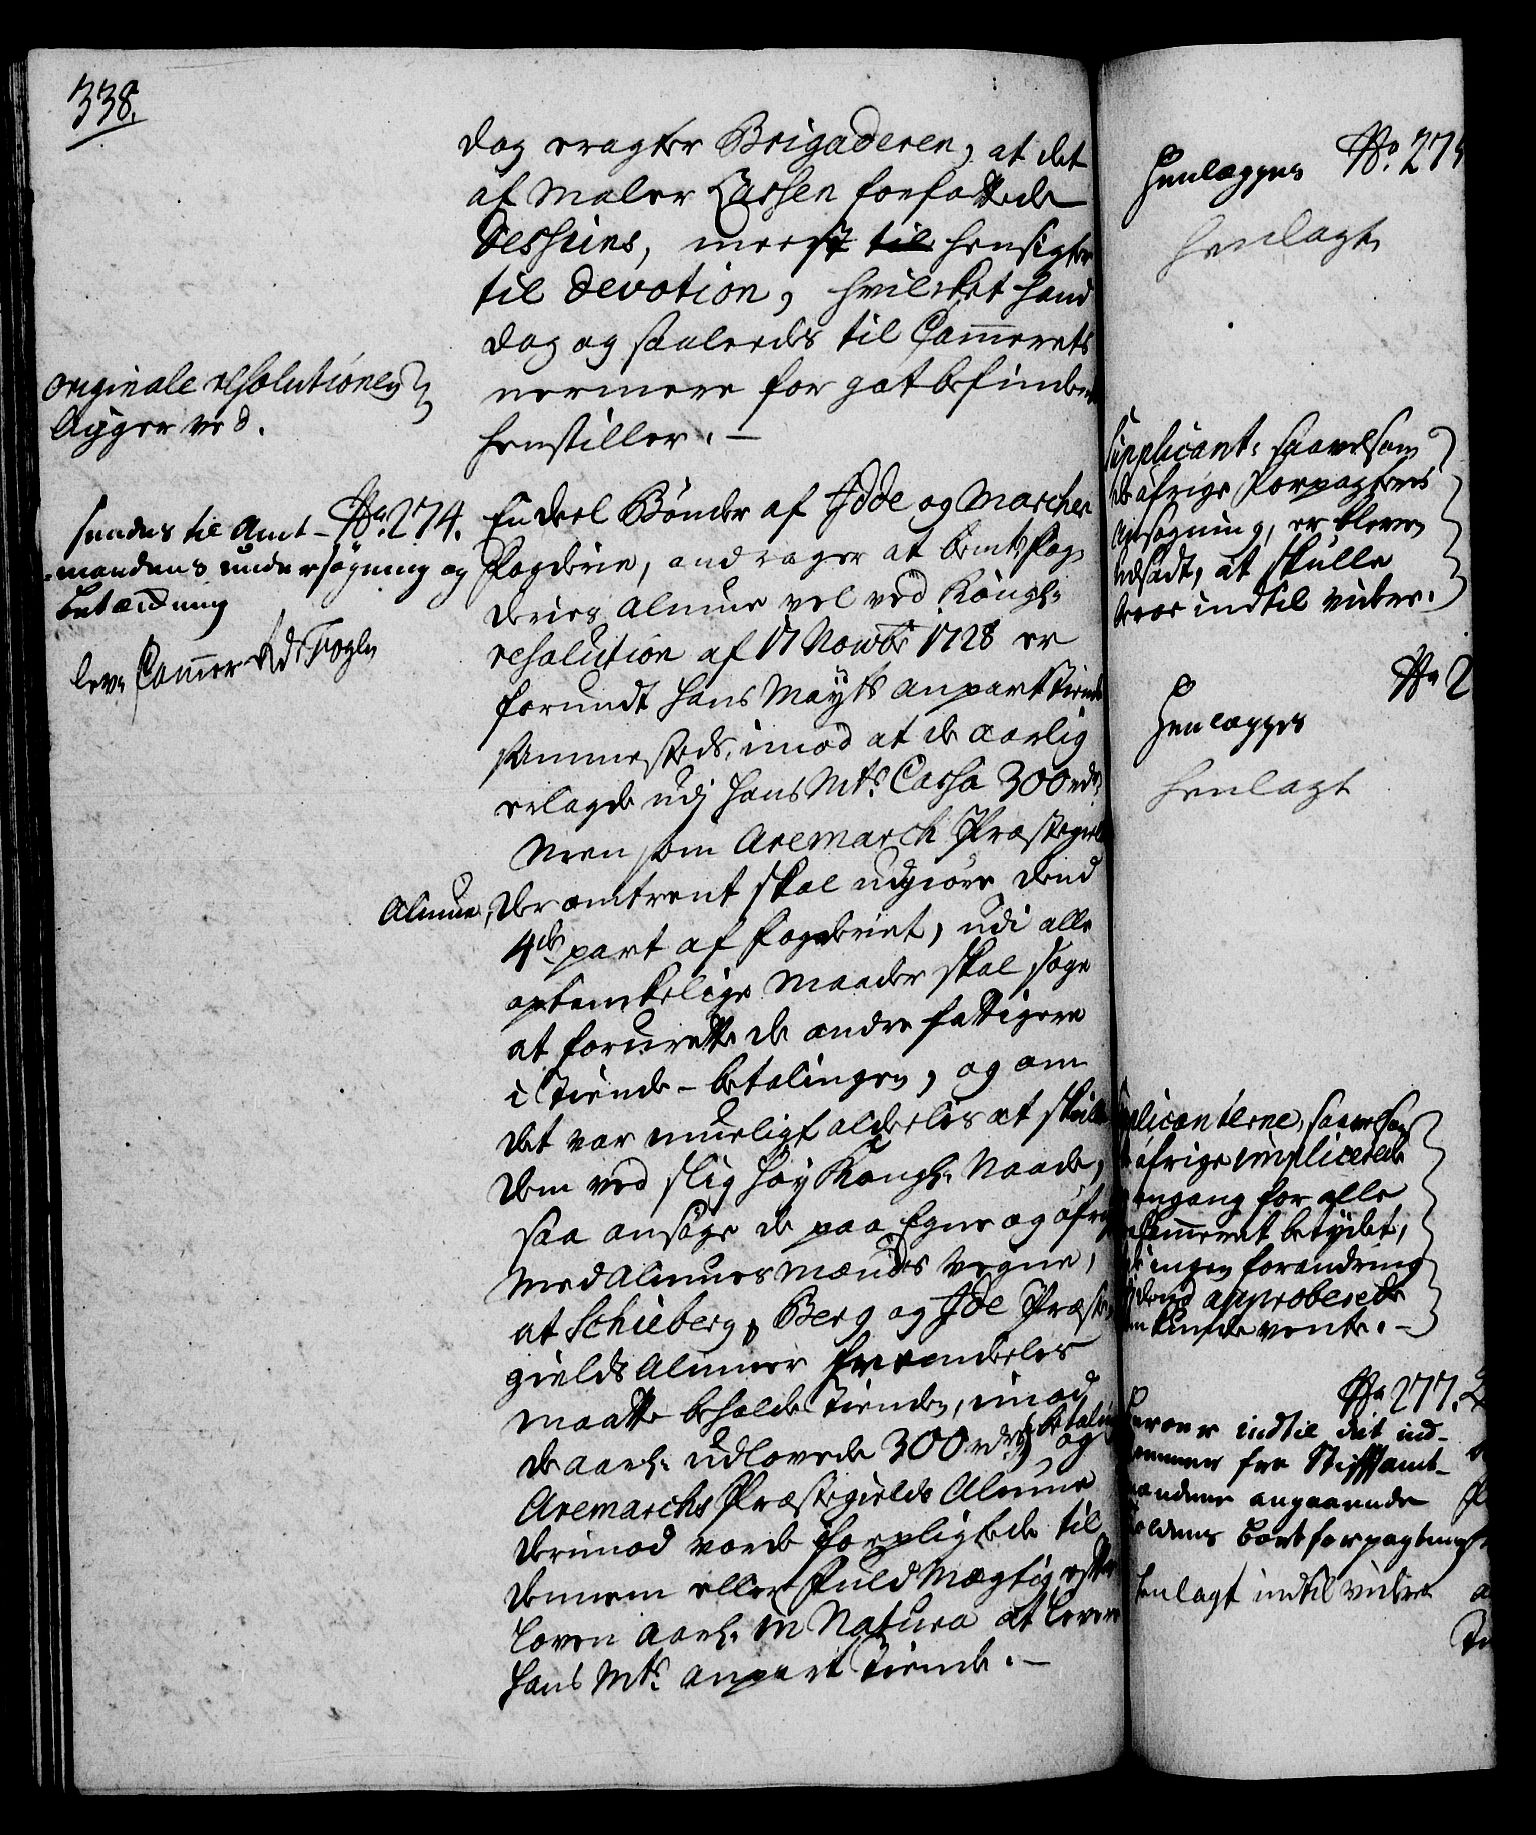 338.
dog eragter Brigaderen, at det
af Maler Carsen forfattede
Dessieins, meest til hensigter
til Devotion, hvilcket hand
dog og saaledes til Cammerets
nermere for gotbefindende
henstiller. –
originale resolutionen
ligger ved.
No. 274.
sendes til Amt-
mandens undersøgning og
betænkning
lev. Cammer Rd Fogh
En deel Bønder af Idde og Marcker
Fogderie, andrager at bemte Fog-
deries Almue vel ved Kongl.
resolution af 17 Novbr 1728 er
forundt Hans Mayts anpart tiende
sammesteds, imod at de aarlig
erlagde udj Hans Mts. Cassa 300 rdr.
Men som Aremarch Præstegields
Almue, der omtrent skal udgiøre dend
4de part af Fogderiet, udi alle
optenckelige Maader skal søge
at forurette de andre fattigere
i Tiende-betalingen, og om
det var mueligt aldeeles at skille
dem ved slig høy Kongl. Naade,
saa ansøge de paa Egne og øfrige
Med Almues mænds vegne,
at Schieberg, Berg og Ide Præste-
gields Almuer fremdeeles
maatte beholde Tienden, imod
de aarl. udlovede 300 rdrs betaling og
Aremarchs Præstegields Almue
derimod vorde forpligtede til
dennem eller Fuldmægtig efter
Loven aarl. in Natura at levere
Hans Mts. anpart Tiende. –
No. 275
Henlægges
henlagt
Supplicant: saavelsom
de øfrige Forpagteres
Ansøgning, er bleven
udsadt, at skulle
beroe indtil videre.
No 2
Henlægges
henlagt
Supplicanterne, saavelsom
øfrige implicerede
engang for alle
Cammeret betydet,
ingen forandring
approberede
kunde vente. –
No 277.
beroer indtil det ind-
kommer fra Stiftamt-
manden angaaende
bortforpagtning
henlagt indtil videre